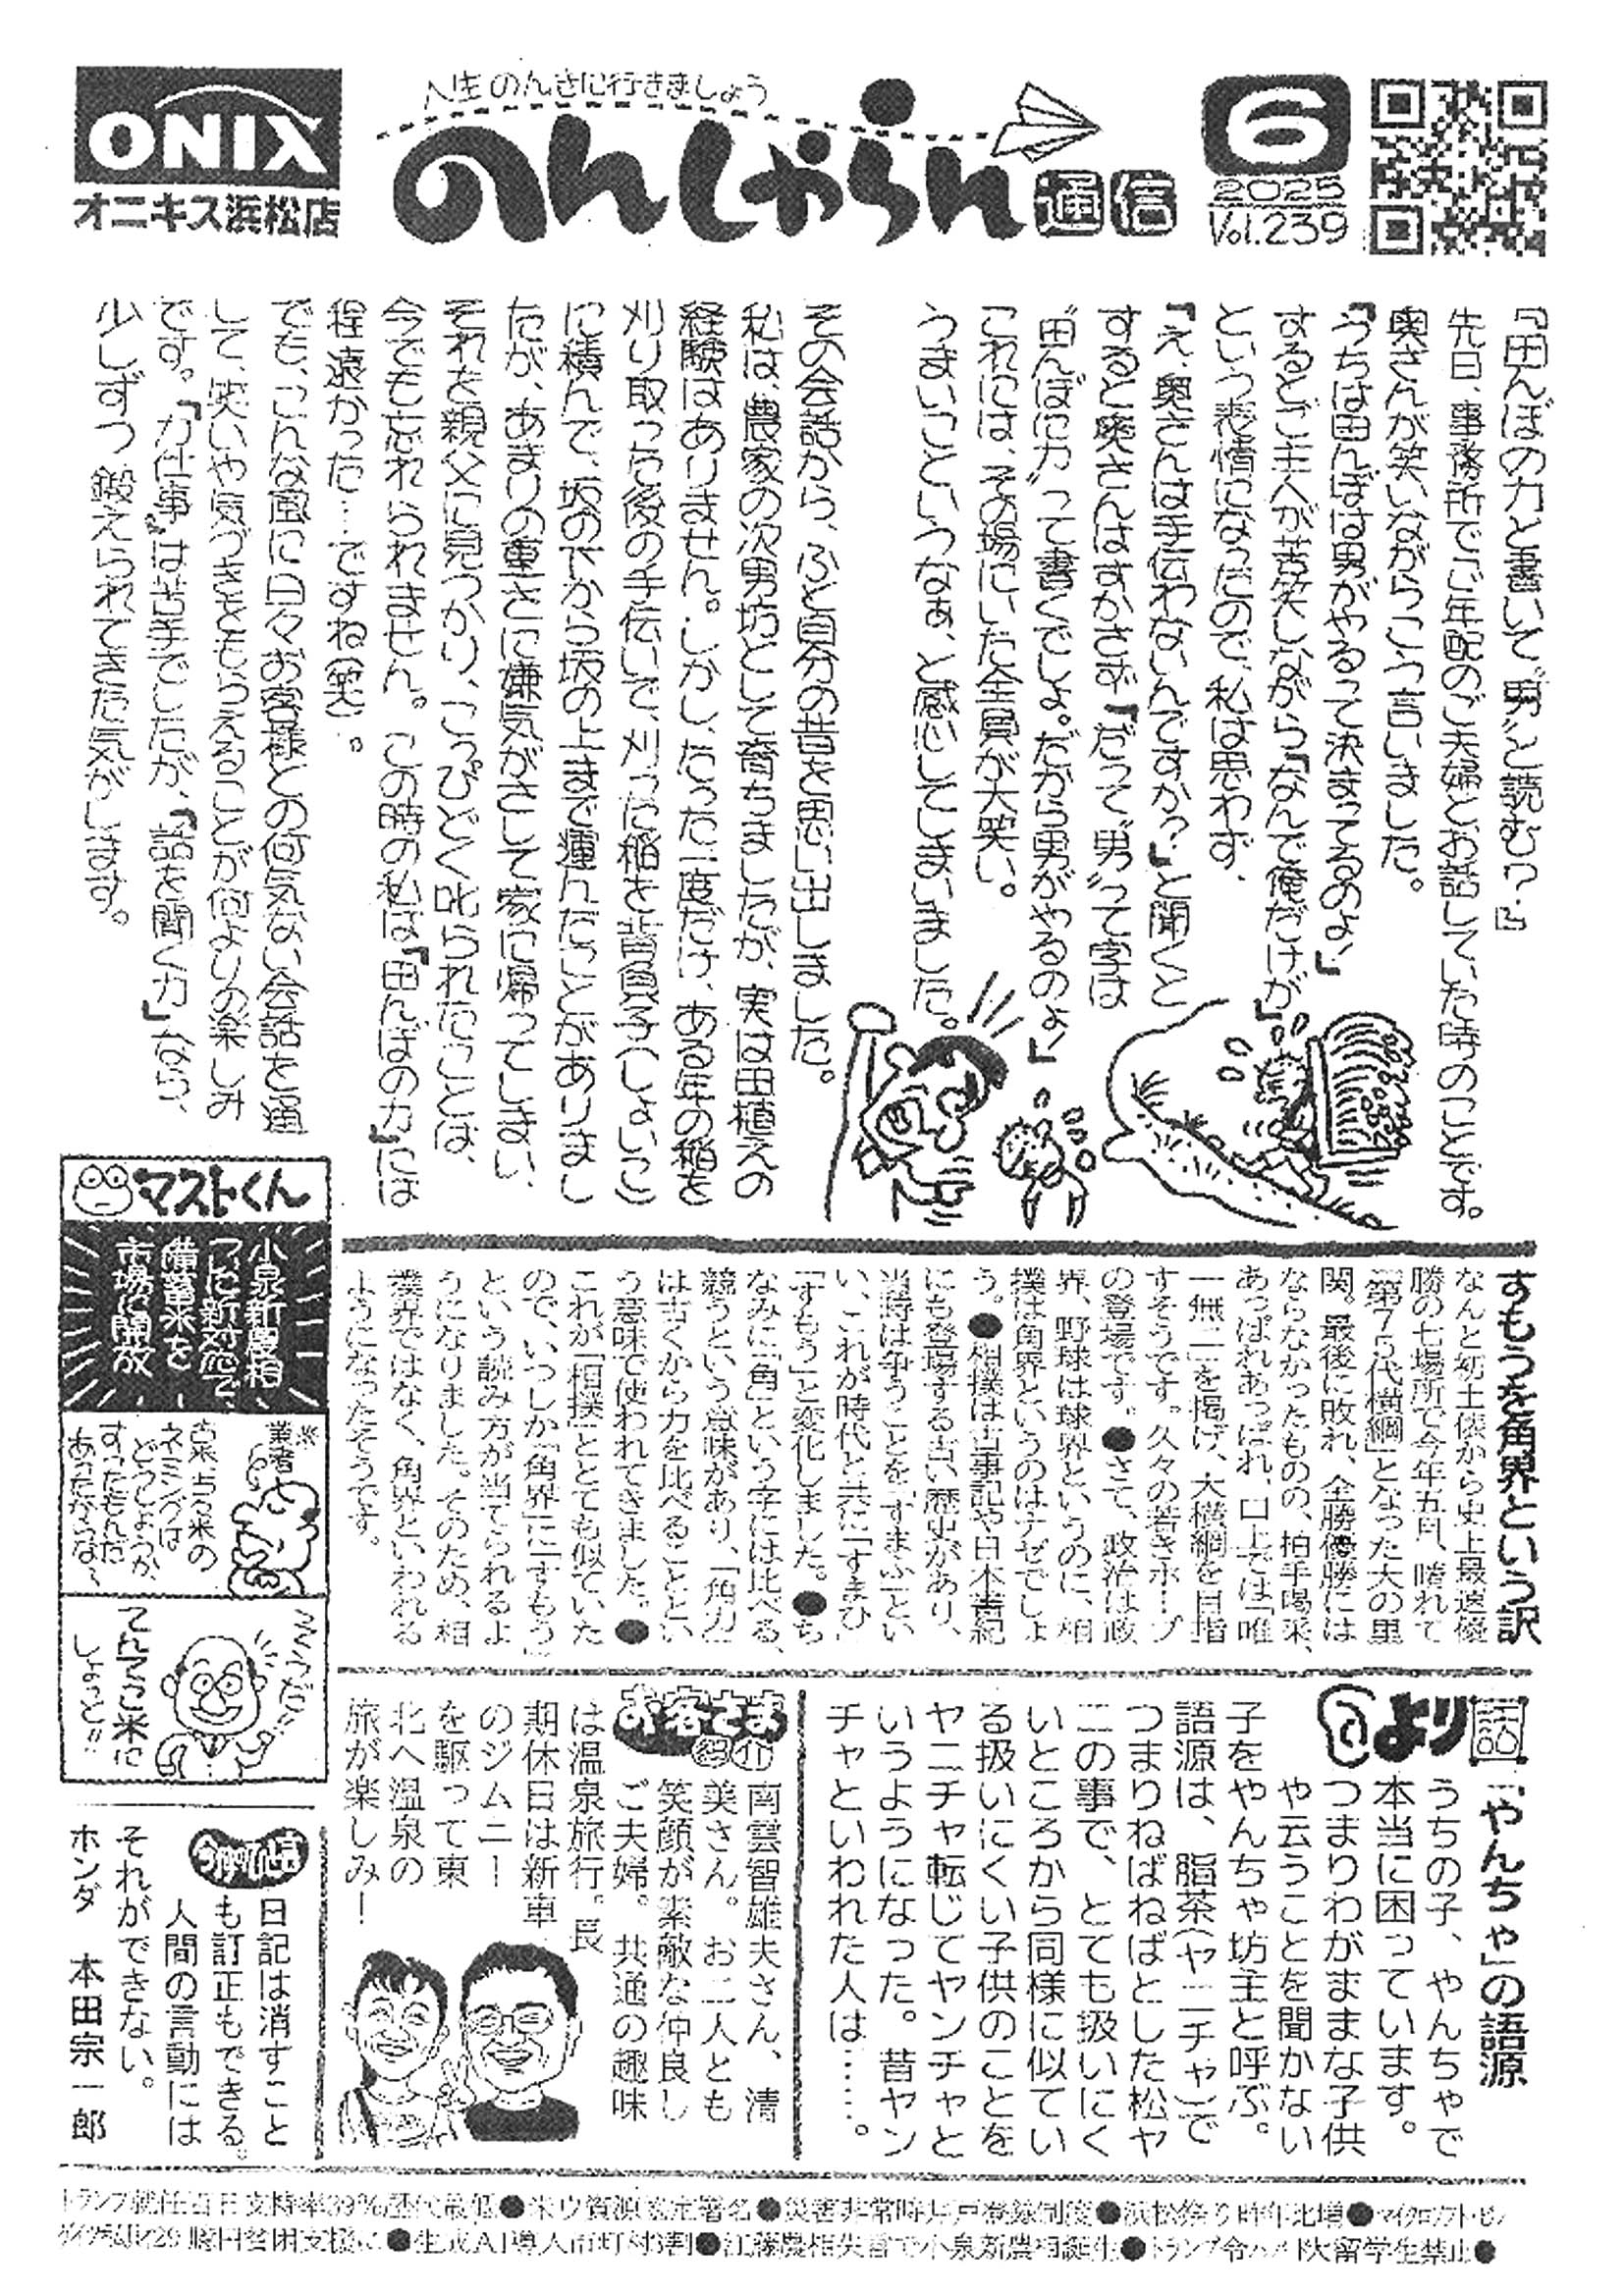 ONIX
オニキス浜松店
人生のんきに行きましょう
のんしゃらん通信
6
2025
Vol.239
『田んぼの力と書いて、“男”と読む?』
先日、事務所でご年配のご夫婦とお話していた時のことです。
奥さんが笑いながらこう言いました。
『うちは田んぼは男がやるって決まってるのよ!』
するとご主人が苦笑しながら『なんで俺だけが』
という表情になったので、私は思わず、
『え、奥さんは手伝わないんですか?』と聞くと
すると奥さんはすかさず『だって“男”って字は
“田んぼに力”って書くでしょ。だから男がやるのよ!』
これには、その場にいた全員が大笑い。
うまいこというなぁ、と感心してしまいました。
その会話から、ふと自分の昔を思い出しました。
私は、農家の次男坊として育ちましたが、実は田植えの
経験はありません。しかし、たった一度だけ、ある年の稲を
刈り取った後の手伝いで、刈った稲を背負子(しょいこ)
に積んで、坂の下から坂の上まで運んだことがありまし
たが、あまりの重さに嫌気がさして家に帰ってしまい、
それを親父に見つかり、こっぴどく叱られたことは、
今でも忘れられません。この時の私は『田んぼの力』には
程遠かった…ですね(笑)。
でも、こんな風に日々お客様との何気ない会話を通
して、笑いや気づきをもらえることが何よりの楽しみ
です。『力仕事』は苦手でしたが、『話を聞く力』なら、
少しずつ鍛えられてきた気がします。
すもうを角界という訳
なんと初土俵から史上最速優
勝の七場所で今年五月、晴れて
「第75代横綱」となった大の里
関。最後に敗れ、全勝優勝には
ならなかったものの、拍手喝采、
あっぱれあっぱれ、口上では「唯
一無二」を掲げ、大横綱を目指
すそうです。久々の若きホープ
の登場です。●さて、政治は政
界、野球は球界というのに、相
撲は角界というのはナゼでしょ
う。●相撲は古事記や日本書紀
にも登場する古い歴史があり、
当時は争うことを「すまふ」とい
い、これが時代と共に「すまひ」
「すもう」と変化しました。●ち
なみに「角」という字には比べる、
競うという意味があり、「角力」
は古くから力を比べることとい
う意味で使われてきました。●
これが「相撲」ととても似ていた
ので、いつしか「角界」に「すもう」
という読み方が当てられるよ
うになりました。そのため、相
撲界ではなく、角界といわれる
ようになったそうです。
マストくん
小泉新農相
つに新対応で
備蓄米を
市場に開放
米
業者
古米、古々米の
ネーミングは
どうしようか、
すったもんだ
あったからな〜
そうだ!!
てんてこ米に
しょっと!!
話より
「やんちゃ」の語源
うちの子、やんちゃで
本当に困っています。
つまりわがままな子供
や云うことを聞かない
子をやんちゃ坊主と呼ぶ。
語源は、脂茶(ヤニチャ)で
つまりねばねばとした松ヤ
ニの事で、とても扱いにく
いところから同様に似てい
る扱いにくい子供のことを
ヤニチャ転じてヤンチャと
いうようになった。昔ヤン
チャといわれた人は……。
お客さま
紹介
南雲智雄夫さん、清
美さん。お二人とも
笑顔が素敵な仲良し
ご夫婦。共通の趣味
は温泉旅行。長
期休日は新車
のジムニー
を駆って東
北へ温泉の
旅が楽しみ!
日記は消すこと
も訂正もできる。
人間の言動には
それができない。
ホンダ 本田宗一郎
トランプ就任百日支持率39%歴代最低●米ウ資源協定署名●災害非常時井戸登録制度●浜松祭り昨年比増●マイクロソフト・ビル
ゲイツ氏財産29兆円貧困支援に●生成AI導入市町村3割●江藤農相失言で小泉新農相誕生●トランプ令ハーバード大留学生禁止●